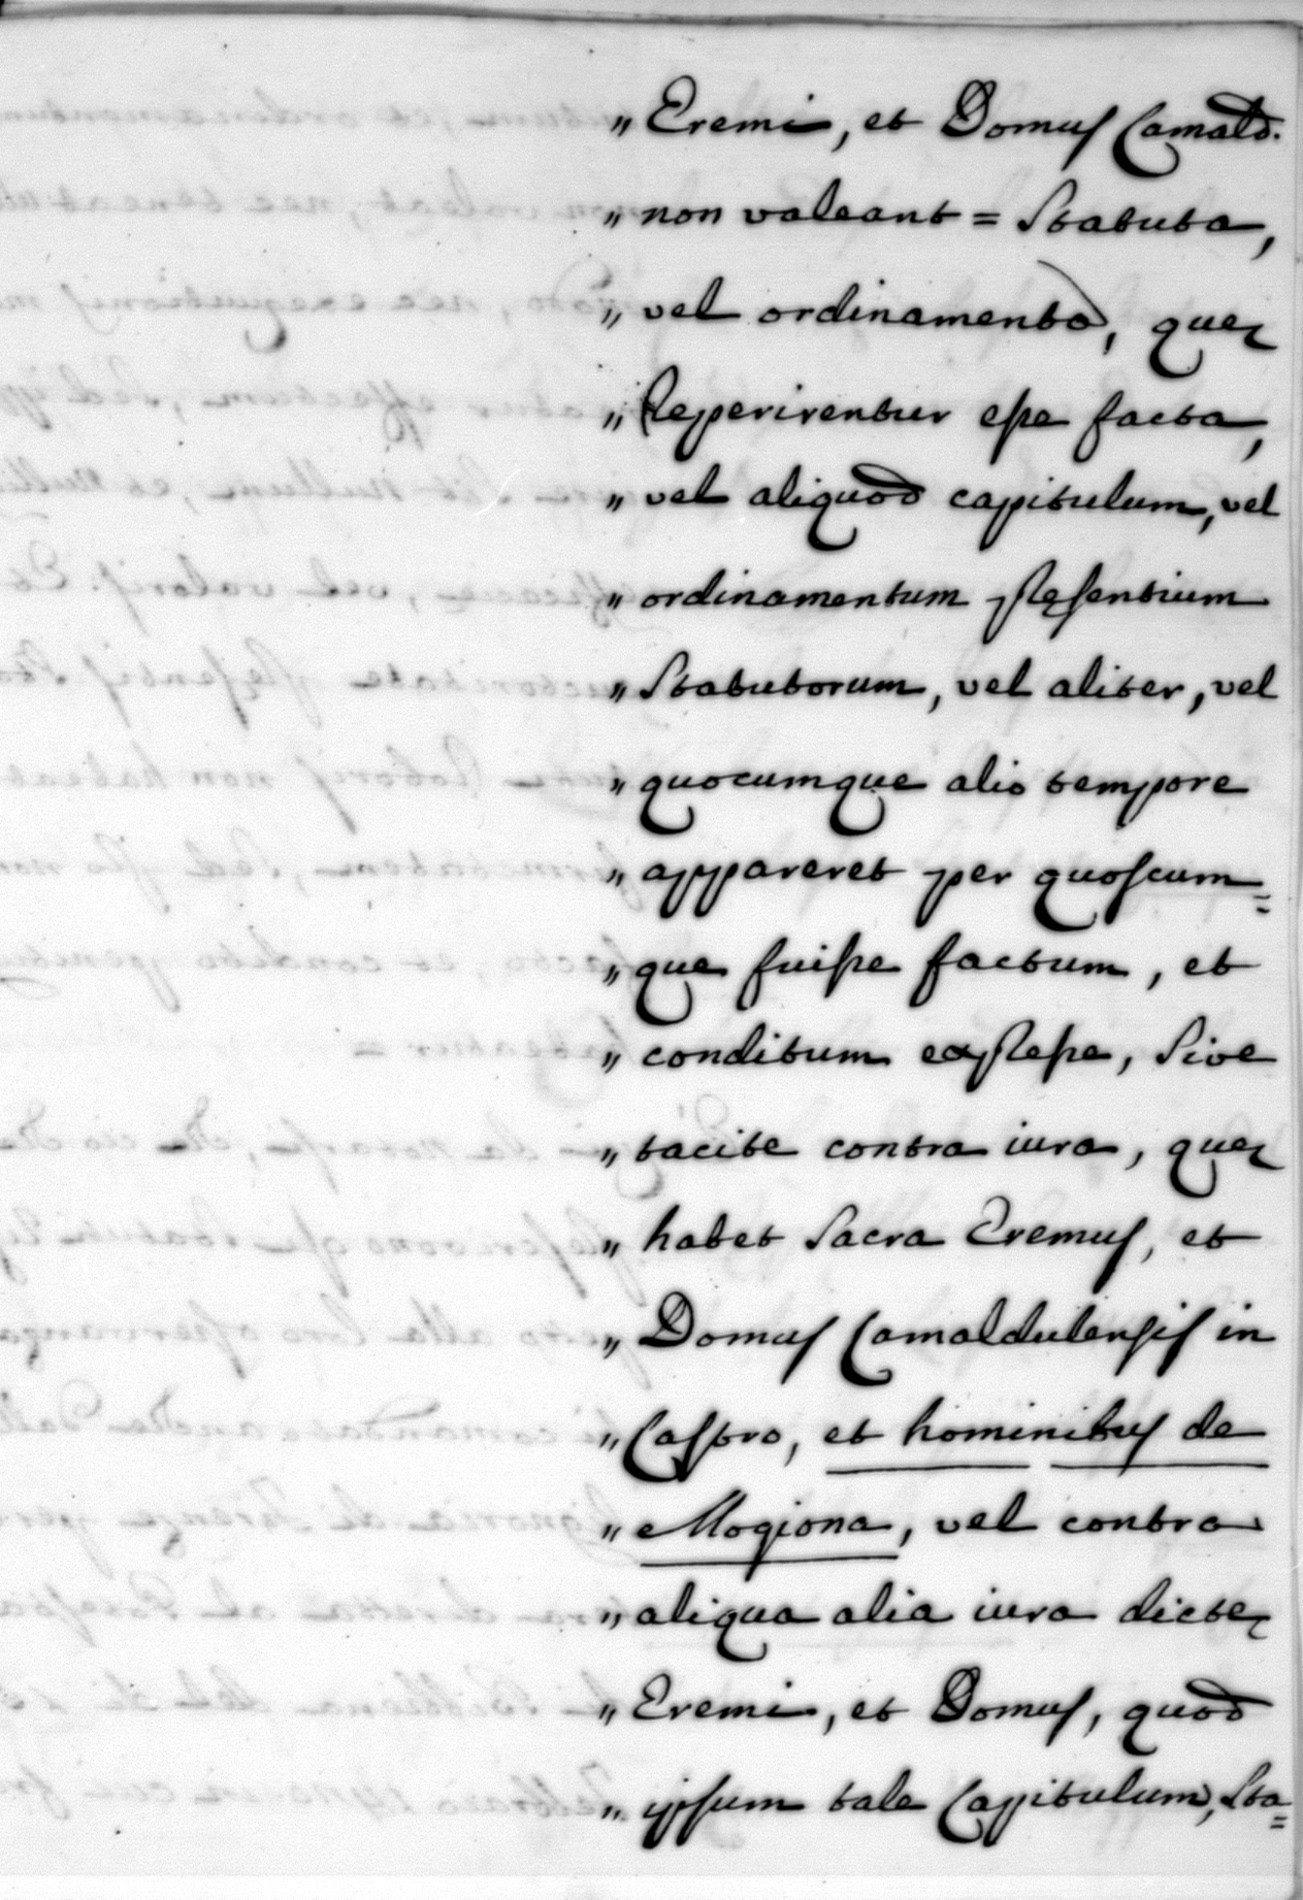 „ Eremi, et Domus Camald.
„ non valeant = Statuta,
„ vel ordinamenta, quę
„ Reperirentur esse facta,
„ vel aliquod capitulum, vel
„ ordinamentum pręsentium
„ Statutorum, vel aliter, vel
„ quocumque alio tempore
„ appareret per quoscum=
„ que fuisse factum, et
„ conditum expresse, sive
„ tacite contra iura, quę
„ habet Sacra Eremus, et
„ Domus Camaldulensis in
„ Castro, et hominibus de
„ Mogiona, vel contra
„ aliqua alia iura dictę
„ Eremi, et Domus, quod
„ ipsum tale Capitulum, Sta=